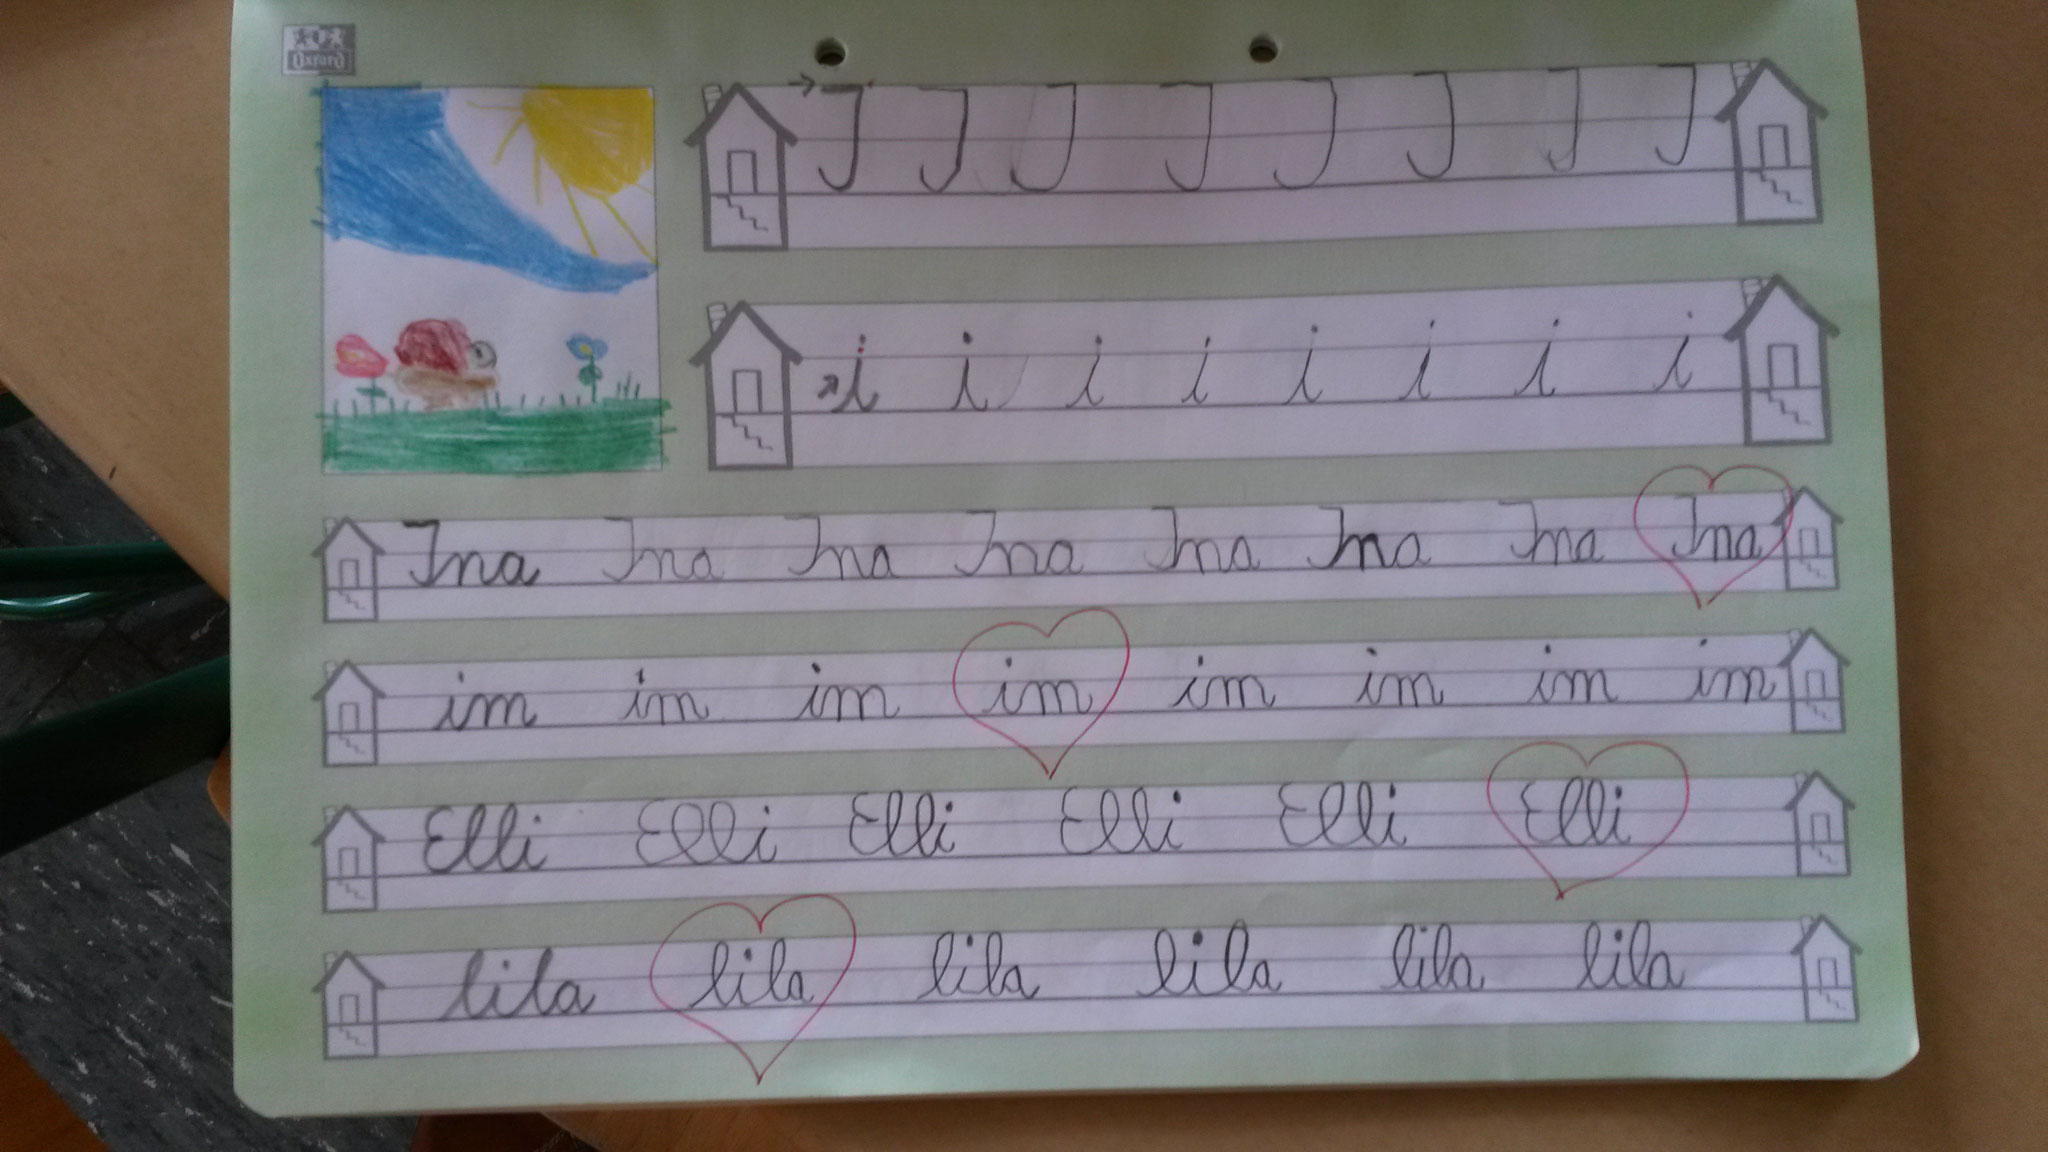 Oxford
I I I I I I I I
i i i i i i i i
Ina Ina Ina Ina Ina Ina Ina Ina
im im im im im im im im
Elli Elli Elli Elli Elli Elli
lila lila lila lila lila lila